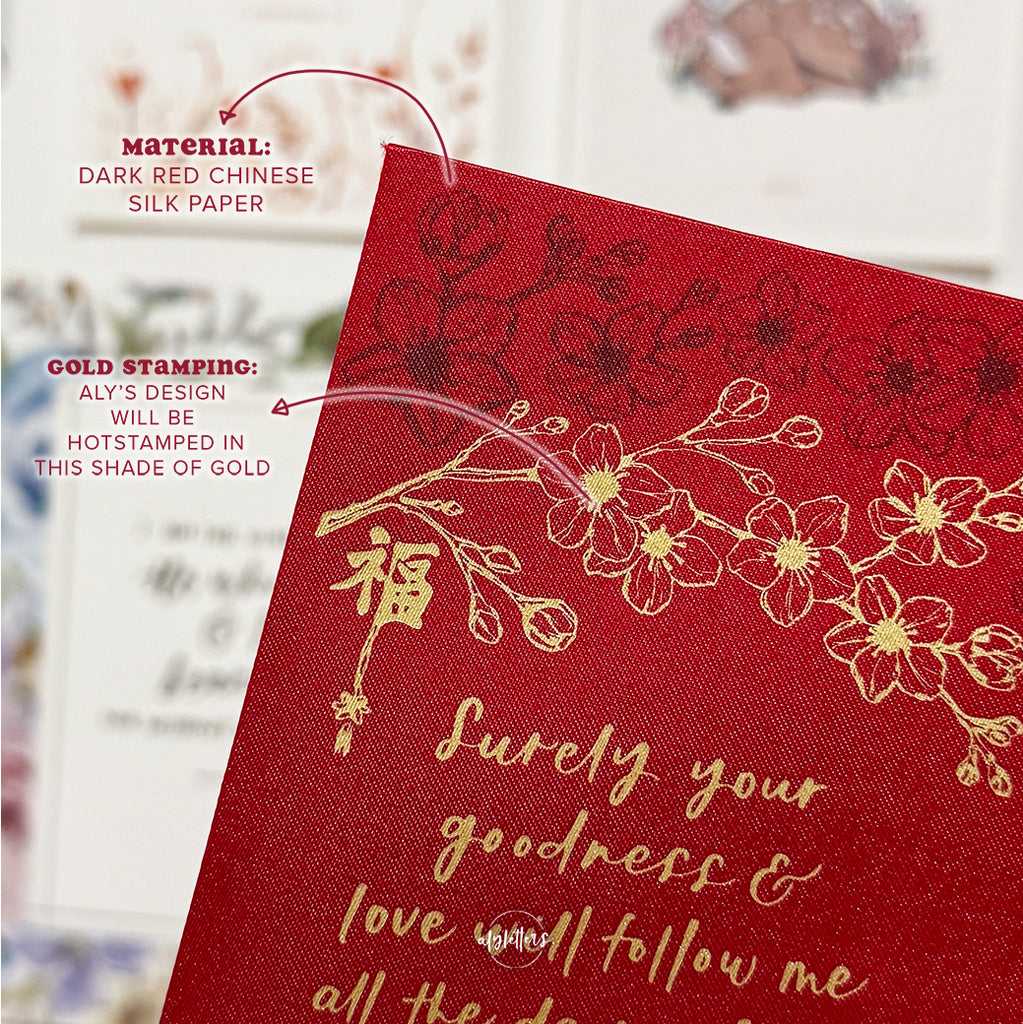 MATERIAL:
DARK RED CHINESE
SILK PAPER
GOLD STAMPING:
ALY'S DESIGN
WILL BE
HOTSTAMPED IN
THIS SHADE OF GOLD
福
Surely your
goodness &
love will follow me
all the
alyletters